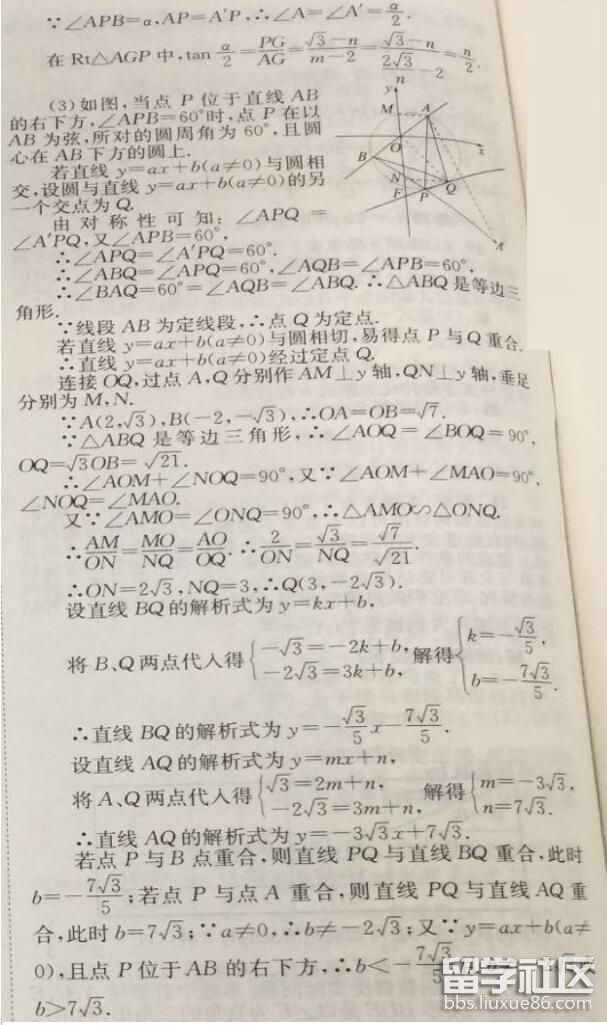 ∵∠APB=α,AP=A′P,∴∠A=∠A′=α/2.
在 Rt△AGP 中,tan α/2=PG/AG=(√3-n)/(m-2)=(√3-n)/(2√3/n-2)=n/2.
(3)如图,当点 P 位于直线 AB
的右下方,∠APB=60°时,点 P 在以
AB 为弦,所对的圆周角为 60°,且圆
心在 AB 下方的圆上.
若直线 y=ax+b(a≠0)与圆相
交,设圆与直线 y=ax+b(a≠0)的另
一个交点为 Q.
由对称性可知:∠APQ=
∠A′PQ,又∠APB=60°,
∴∠APQ=∠A′PQ=60°.
∴∠ABQ=∠APQ=60°,∠AQB=∠APB=60°,
∴∠BAQ=60°=∠AQB=∠ABQ.∴△ABQ 是等边三
角形.
y
M
A
O
x
B
N
Q
F
P
A′
∵线段 AB 为定线段,∴点 Q 为定点.
若直线 y=ax+b(a≠0)与圆相切,易得点 P 与 Q 重合.
∴直线 y=ax+b(a≠0)经过定点 Q.
连接 OQ,过点 A,Q 分别作 AM⊥y 轴,QN⊥y 轴,垂足
分别为 M,N.
∵A(2,√3),B(-2,-√3),∴OA=OB=√7.
∵△ABQ 是等边三角形,∴∠AOQ=∠BOQ=90°,
OQ=√3OB=√21.
∴∠AOM+∠NOQ=90°,又∵∠AOM+∠MAO=90°,
∠NOQ=∠MAO.
又∵∠AMO=∠ONQ=90°,∴△AMO∽△ONQ.
∴AM/ON=MO/NQ=AO/OQ.∴2/ON=√3/NQ=√7/√21.
∴ON=2√3,NQ=3,∴Q(3,-2√3).
设直线 BQ 的解析式为 y=kx+b,
将 B、Q 两点代入得{-√3=-2k+b, -2√3=3k+b,解得{k=-√3/5, b=-7√3/5.
∴直线 BQ 的解析式为 y=-√3/5 x-7√3/5.
设直线 AQ 的解析式为 y=mx+n,
将 A、Q 两点代入得{√3=2m+n, -2√3=3m+n,解得{m=-3√3, n=7√3.
∴直线 AQ 的解析式为 y=-3√3x+7√3.
若点 P 与 B 点重合,则直线 PQ 与直线 BQ 重合,此时
b=-7√3/5;若点 P 与点 A 重合,则直线 PQ 与直线 AQ 重
合,此时 b=7√3;∵a≠0,∴b≠-2√3;又∵y=ax+b(a≠
0),且点 P 位于 AB 的右下方,∴b<-7√3/5
b>7√3.
留学社区
bbs.liuxue86.com